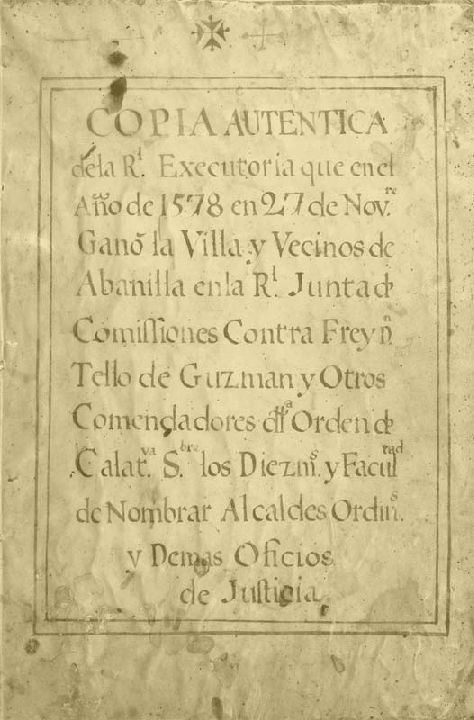 COPIA AUTENTICA
dela Rl. Executoria que en el
Año de 1578 en 27 de Novre.
Ganó la Villa y Vecinos de
Abanilla en la Rl. Junta de
Comissiones Contra Frey Dn.
Tello de Guzman y Otros
Comendadores dla Orden de
Calatva. Sbre. los Diezms. y Facultad
de Nombrar Alcaldes Ordins.
y Demas Oficios
de Justicia.